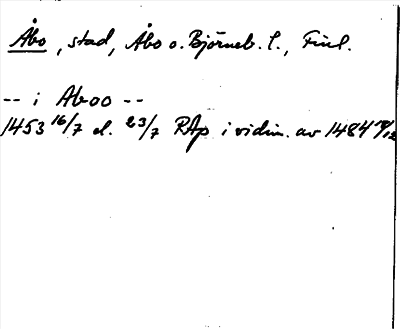 Åbo, stad, Åbo o. Björneb. l., Finl.
-- i Aboo --
1453 16/7 el. 23/7 RAp i vidim. av 1484 18/12